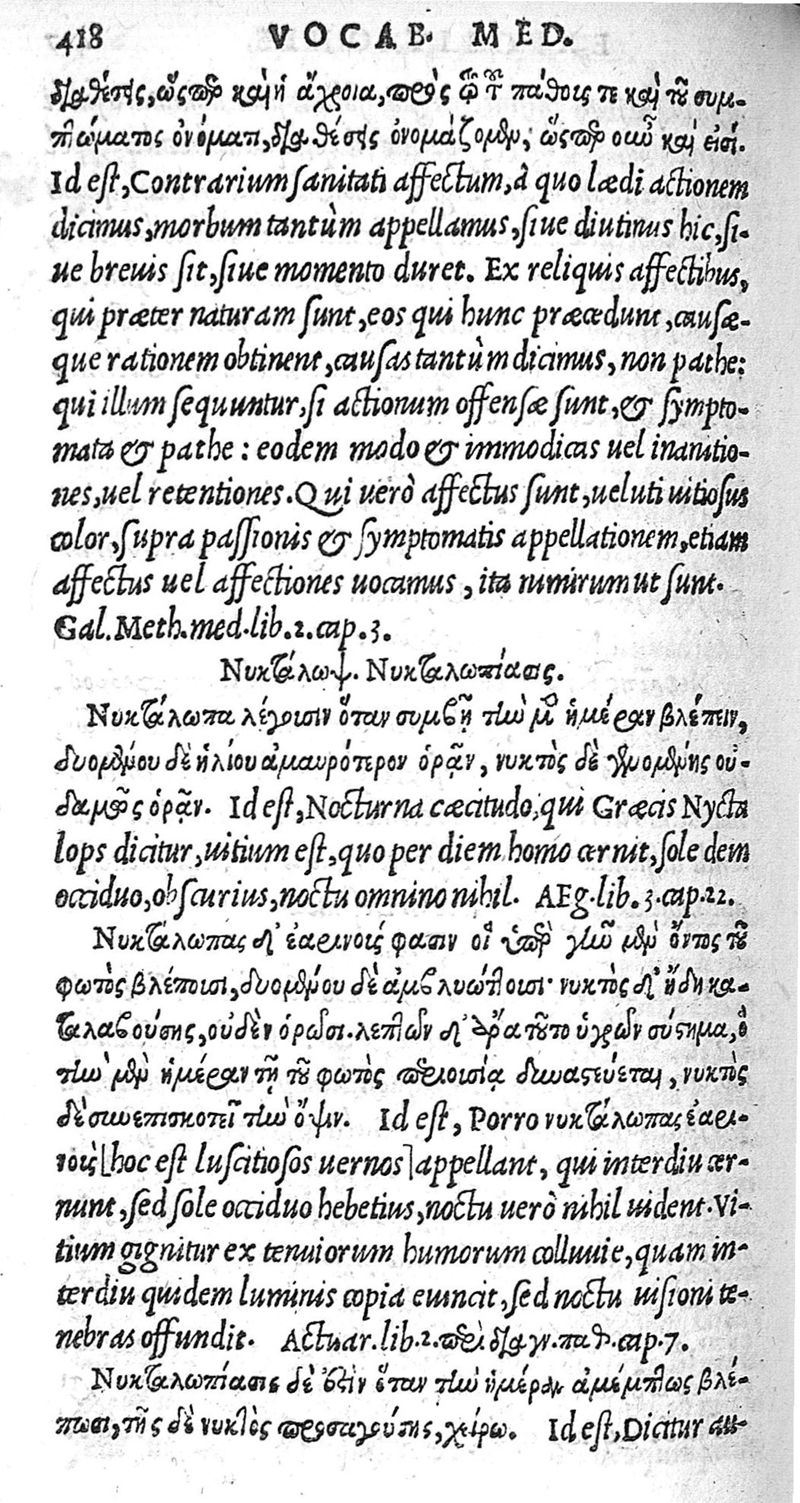 418 VOCAB. MED.
διαθέσις, ὥσπερ καὶ ἡ ἄχροια, πρὸς τῷ τοῦ πάθους τε καὶ τοῦ συμ-
πτώματος ὀνόματι, διαθέσις ὀνομάζομεν, ὥσπερ οὖν καὶ εἰσί.
Id est, Contrarium sanitati affectum, à quo lædi actionem
dicimus, morbum tantùm appellamus, siue diutinus hic, si-
ue breuis sit, siue momento duret. Ex reliquis affectibus,
qui præter naturam sunt, eos qui hunc præcedunt, causæ-
que rationem obtinent, causas tantùm dicimus, non pathe:
qui illum sequuntur, si actionum offensæ sunt, & sympto-
mata & pathe : eodem modo & immodicas uel inanitio-
nes, uel retentiones. Qui uerò affectus sunt, ueluti uitiosus
color, supra passionis & symptomatis appellationem, etiam
affectus uel affectiones uocamus, ita nimirum ut sunt.
Gal. Meth. med. lib. 2. cap. 3.
Νυκτάλωψ. Νυκταλωπίασις.
Νυκτάλωπα λέγουσιν ὅταν συμβῇ τὴν μὲν ἡμέραν βλέπειν,
δυομένου δὲ ἡλίου ἀμαυρότερον ὁρᾷν, νυκτὸς δὲ γενομένης οὐ-
δαμῶς ὁρᾷν. Id est, Nocturna cæcitudo, qui Græcis Nycta
lops dicitur, uitium est, quo per diem homo cernit, sole dem
occiduo, obscurius, noctu omnino nihil. AEg. lib. 3. cap. 22.
Νυκτάλωπας δ' ἐαρινοίς φασιν οἳ ὑπὲρ γῆν μὲν ὄντος τοῦ
φωτὸς βλέπουσι, δυομένου δὲ ἀμβλυώττουσι· νυκτὸς δ' ἤδη κα-
ταλαβούσης, οὐδὲν ὁρῶσι. λεπτῶν δ' ἄρα τοῦτο ὑγρῶν σύστημα, ὃ
τὴν μὲν ἡμέραν τῇ τοῦ φωτὸς περιουσίᾳ δυναστεύεται, νυκτὸς
δὲ συνεπισκοτεῖ τὴν ὄψιν. Id est, Porro νυκτάλωπας ἐαρι-
νοὺς [hoc est luscitiosos uernos] appellant, qui interdiu cer-
nunt, sed sole occiduo hebetius, noctu uerò nihil uident. Vi-
tium gignitur ex tenuiorum humorum colluuie, quam in-
terdiu quidem luminis copia euincit, sed noctu uisioni te-
nebras offundit. Actuar. lib. 2. περὶ διαγν. παθ. cap. 7.
Νυκταλωπίασις δὲ ἐστὶν ὅταν τὴν ἡμέραν ἀμέμπτως βλέ-
πωσι, τῆς δὲ νυκτὸς προσαγούσης, χείρω. Id est, Dicitur au-